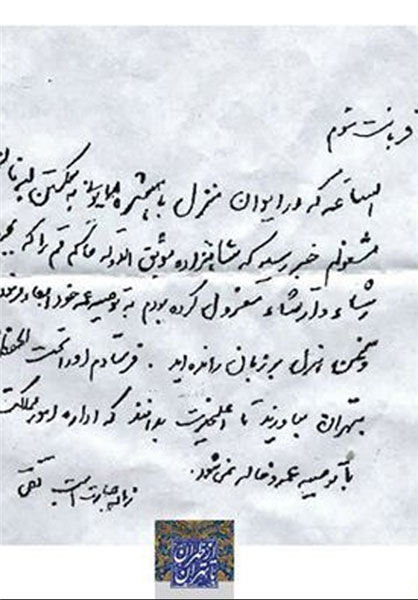 قربانت شوم
الساعه که در ایوان منزل با همشیره همایونی به شکستن لبه نان
مشغولم خبر رسید که شاهزاده موثق الدوله حاکم قم را که
رشاء و ارتشاء معزول کرده بودم به توصیه عمه خود ابقاء
و سخن هزل بر زبان رانده اید . فرستادم او را تحت الحفظ
بتهران بیاورند تا اعلیحضرت بدانند که اداره امور مملکت
با توصیه عمه و خاله نمی شود.
زیاده جسارت است تقی
از طهران
تا تهران